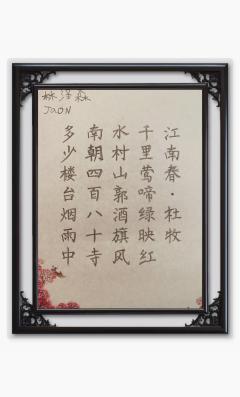 江南春·杜牧
千里莺啼绿映红
水村山郭酒旗风
南朝四百八十寺
多少楼台烟雨中
林泽森
JaoN